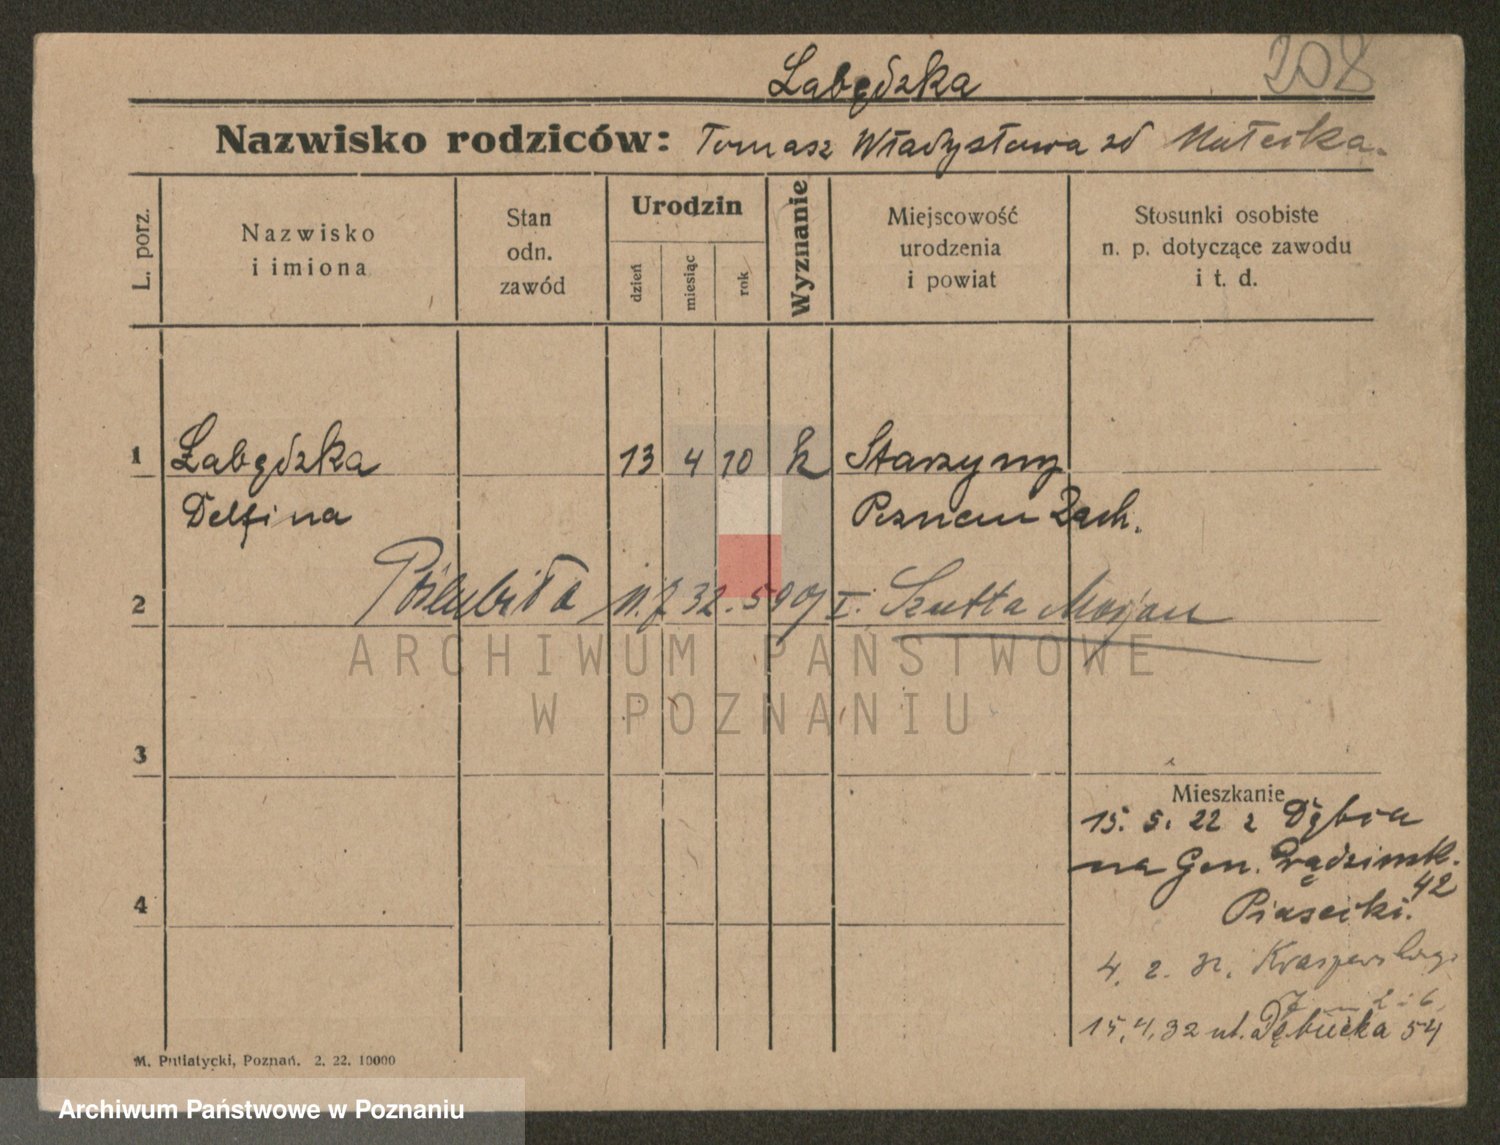 Łabędzka 208
Nazwisko rodziców: Tomasz Władysława zd Małecka.
L. porz.
Nazwisko
i imiona
Stan
odn.
zawód
Urodzin
dzień
miesiąc
rok
Wyznanie
Miejscowość
urodzenia
i powiat
Stosunki osobiste
n. p. dotyczące zawodu
i t. d.
1 Łabędzka 13 4 10 k Starzyny
Delfina Poznań Zach.
2 Poślubiła 32. 590/I. Szutta Marjan
ARCHIWUM PAŃSTWOWE
W POZNANIU
3
Mieszkanie
15. 5. 22 z Dębca
na Gen. Prądzińsk.
42
4 Piasecki.
4. 2. 32. Kraszewskiego
15.4.32 ul. Dębiecka 54
M. Putiatycki, Poznań. 2. 22. 10000
Archiwum Państwowe w Poznaniu